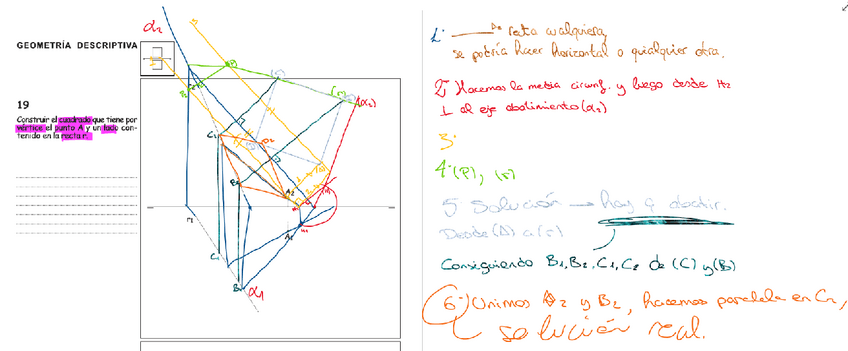 GEOMETRÍA DESCRIPTIVA
19
Construir el cuadrado que tiene por
vértice el punto A y un lado con-
tenido en la recta r.
α2
(α2)
C1
B2
A2
A1
C1
B1
α1
r1
1º recta cualquiera,
se podría hacer horizontal o cualquier otra.
2º Hacemos la media circunf. y luego desde H2
⊥ al eje abatimiento (α2)
3º
4º (P), (S)
5 Solución → hay q abatir.
Desde (A) a (r)
Consiguiendo B1, B2, C1, C2 de (C) y (B)
6º Unimos A2 y B2, hacemos paralela en C2,
solución real.